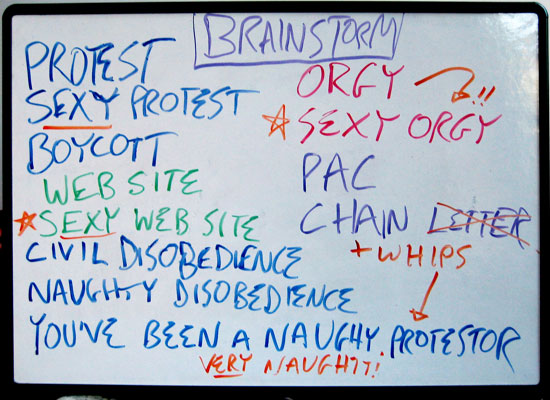 BRAINSTORM
PROTEST
SEXY PROTEST
BOYCOTT
WEB SITE
SEXY WEB SITE
CIVIL DISOBEDIENCE
NAUGHTY DISOBEDIENCE
YOU'VE BEEN A NAUGHY PROTESTOR
VERY NAUGHTY!
ORGY !!
SEXY ORGY
PAC
CHAIN LETTER
+ WHIPS